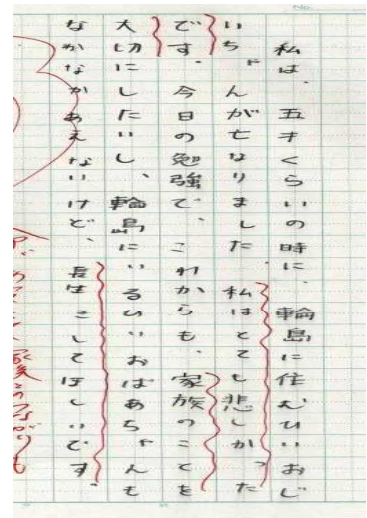 私は、五才くらいの時に、輪島に住むひいおじ
いちゃんが亡なりました私はとても悲しかった
です。今日の勉強で、これからも、家族のことを
大切にしたいし、輪島にいるひいおばあちゃんも
なかなかあえないけど、長生きしてほしいです。